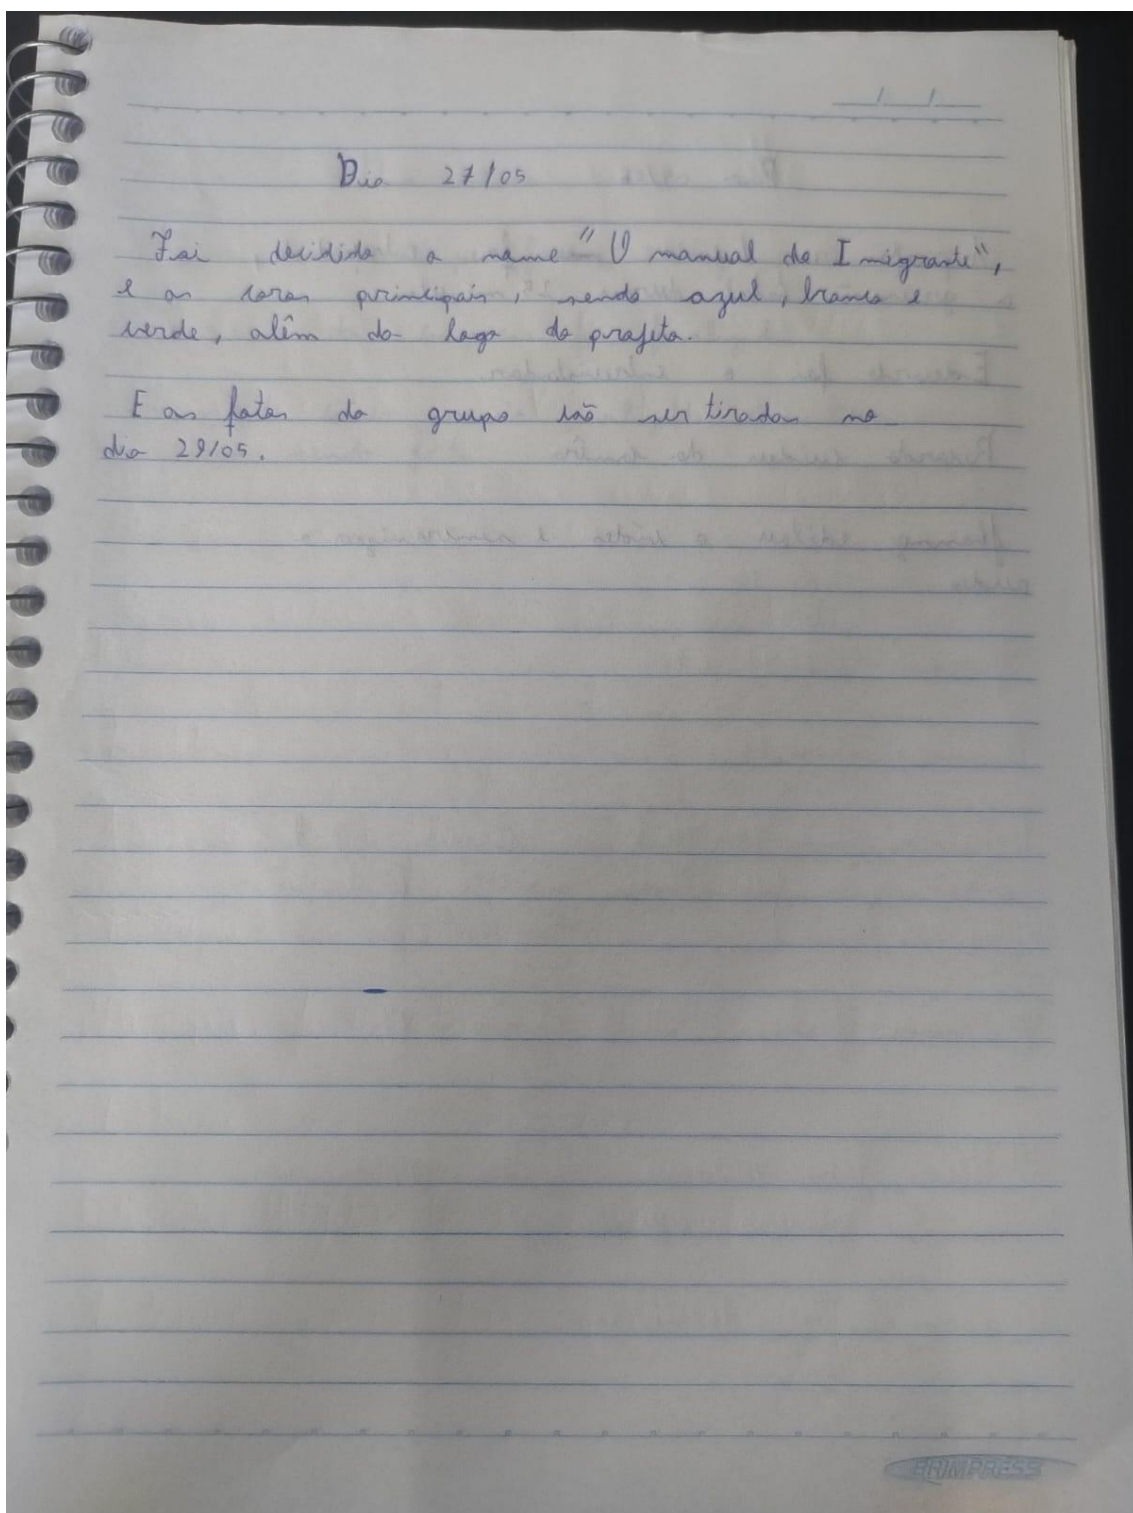 Dia 27/05
Foi decidido o nome "O manual do Imigrante",
e as cores principais, sendo azul, branco e
verde, além da logo do projeto.
E as fotos do grupo irão ser tiradas no
dia 29/05.
ENIMPRESS